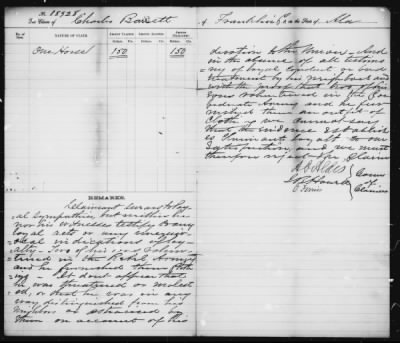 No. 18528
The Claim of Charles Barrett of Franklin Co in the State of Ala
No. of Item. NATURE OF CLAIM. Amount Claimed. Amount Allowed. Amount Disallowed.
Dollars. Cts. Dollars. Cts. Dollars. Cts.
One Horse 150 150
REMARKS.
Claimant swears to loy-
al sympathies but neither he
nor his witnesses testify to any
loyal acts or any
indications of loy-
alty. Two of his sons volun-
teered in the Rebel Army
and he furnished them cloth-
ing. It dont appear that
he was threatened or molest-
ed, or that he was in any
way distinguished from his
neighbors or by
them on account of his
devotion to the Union. And
in the absence of all testimo-
ny of loyal conduct or bad
treatment by his neighbors and
with the proof that two of his
sons volunteered in the Con-
federate Army and he fur-
nished them an outfit of
cloth we cannot say
that the evidence establish-
es Claimants loyalty to our
satisfaction, and we must
therefore reject the Claim
A O Aldis
J B Howell
O Ferriss
Coms
of
Claims